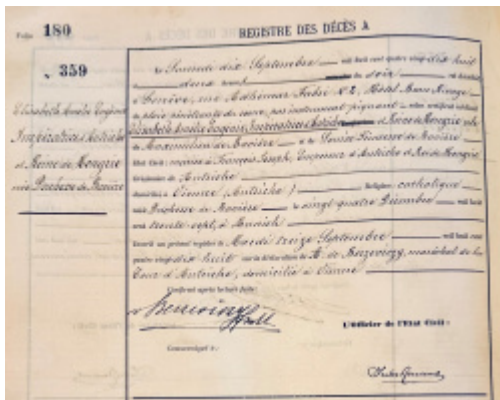 Folio 180
REGISTRE DES DÉCÈS A
N. 359
Elisabeth Amélie Eugénie
Impératrice d'Autriche
et Reine de Hongrie
née Duchesse de Bavière
Le Samedi dix Septembre mil huit cent quatre vingt dix huit
à deux heures du soir est décédée
à Genève, rue Adhémar Fabri N° 2, Hôtel Beau Rivage
de plaie pénétrante du cœur, par instrument piquant
Elisabeth Amélie Eugénie, Impératrice d'Autriche et Reine de Hongrie
de Maximilien de Bavière et de Louise Princesse de Bavière
mariée à François Joseph, Empereur d'Autriche et Roi de Hongrie
Originaire de Autriche
domiciliée à Vienne (Autriche) Religion catholique
née Duchesse de Bavière le vingt quatre Décembre mil huit
cent trente sept, à Munich
Inscrit au présent registre le Mardi treize Septembre mil huit cent
quatre vingt dix huit sur la déclaration de M. de maréchal de la
Cour d'Autriche, domicilié à Vienne
Confirmé après lecture faite:
L'Officier de l'État Civil:
Communiqué à: